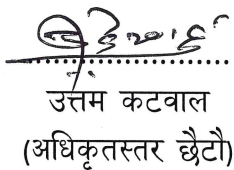 उत्तम कटवाल
(अधिकृतस्तर छैटौ)